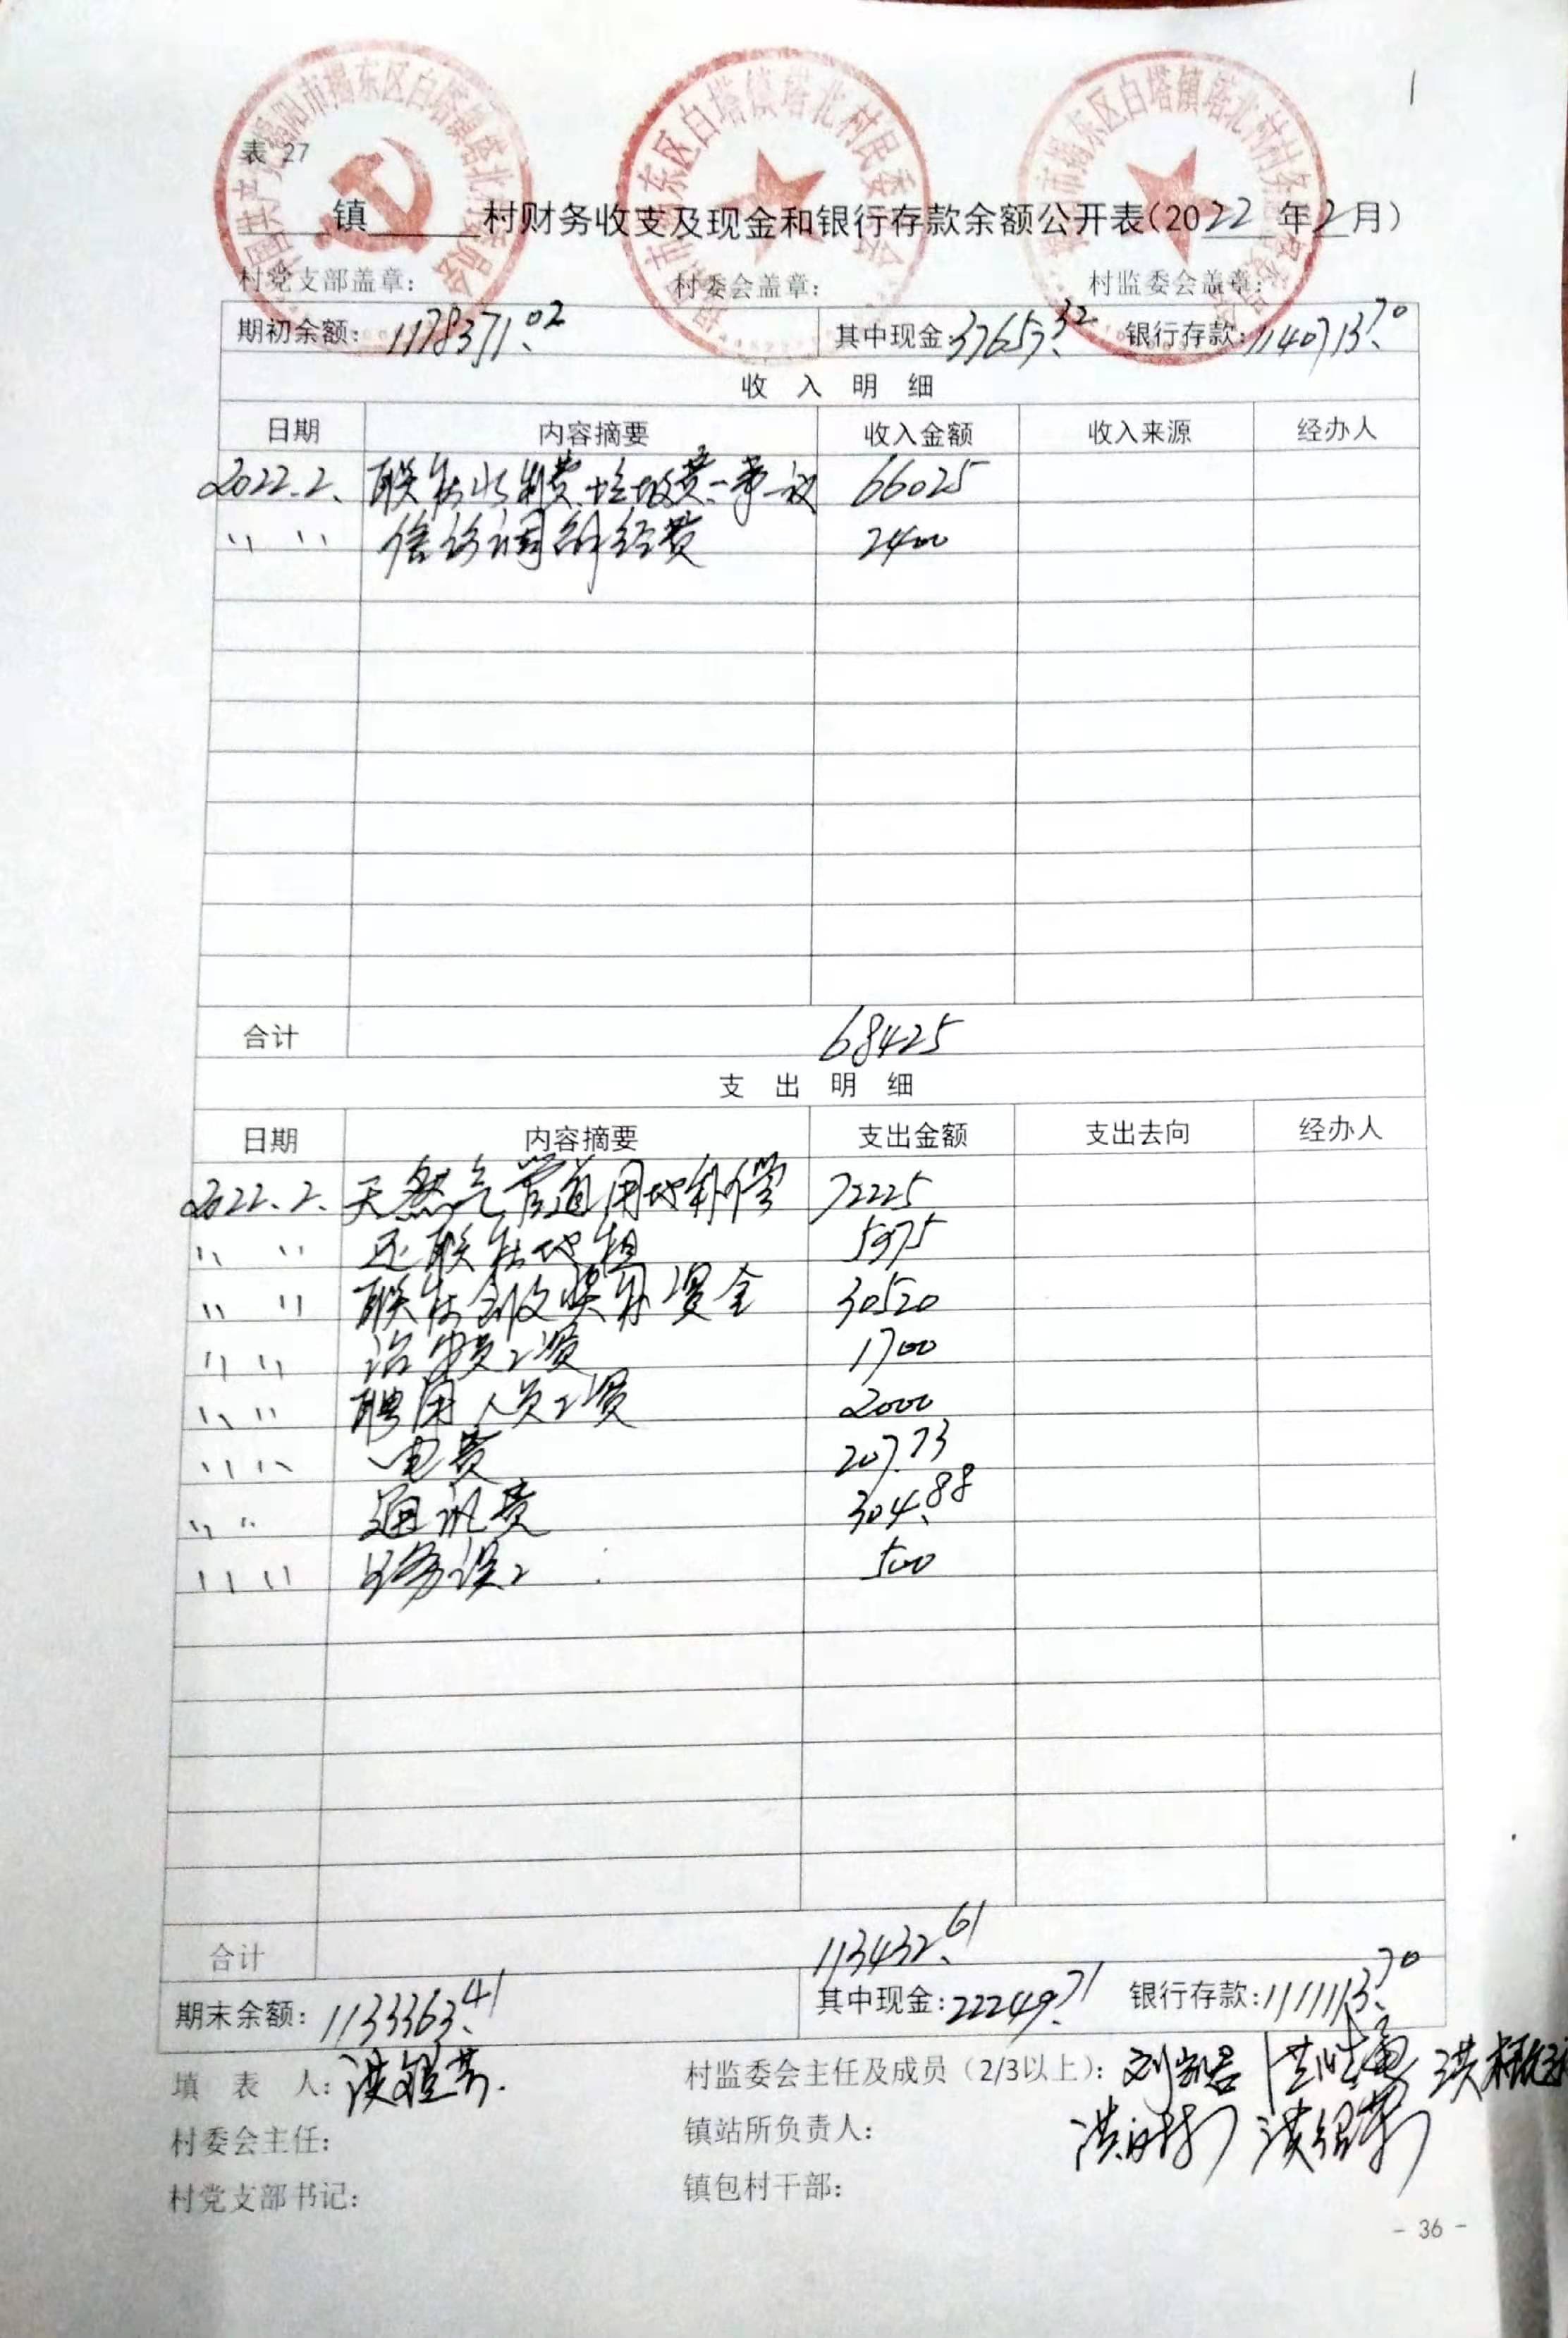 表 27
镇 村财务收支及现金和银行存款余额公开表(2022年2月)
村党支部盖章: 村委会盖章: 村监委会盖章:
期初余额: 1178371.02 其中现金: 37657.32 银行存款: 1140713.70
收 入 明 细
日期 内容摘要 收入金额 收入来源 经办人
2022.2. 联社水利费.垃圾费.一事一议 66025
〃 〃 信访调解经费 2400
合计 68425
支 出 明 细
日期 内容摘要 支出金额 支出去向 经办人
2022.2. 天然气管道用地补偿 72225
〃 〃 还联社地租 5975
〃 〃 联社 资金 30520
〃 〃 治 员工资 1700
〃 〃 聘用人员工资 2000
〃 〃 电费 207.73
〃 〃 通讯费 304.88
〃 〃 误工 500
合计 113432.61
期末余额: 1133363.41 其中现金: 22249.71 银行存款: 1111113.70
填 表 人: 洪
村监委会主任及成员(2/3以上): 刘 洪
村委会主任: 镇站所负责人: 洪 洪
村党支部书记: 镇包村干部:
- 36 -